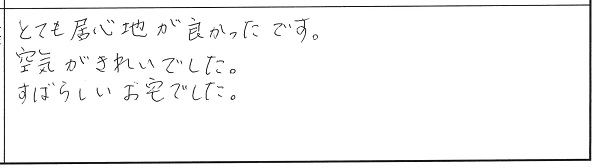 とても居心地が良かったです。
空気がきれいでした。
すばらしいお宅でした。